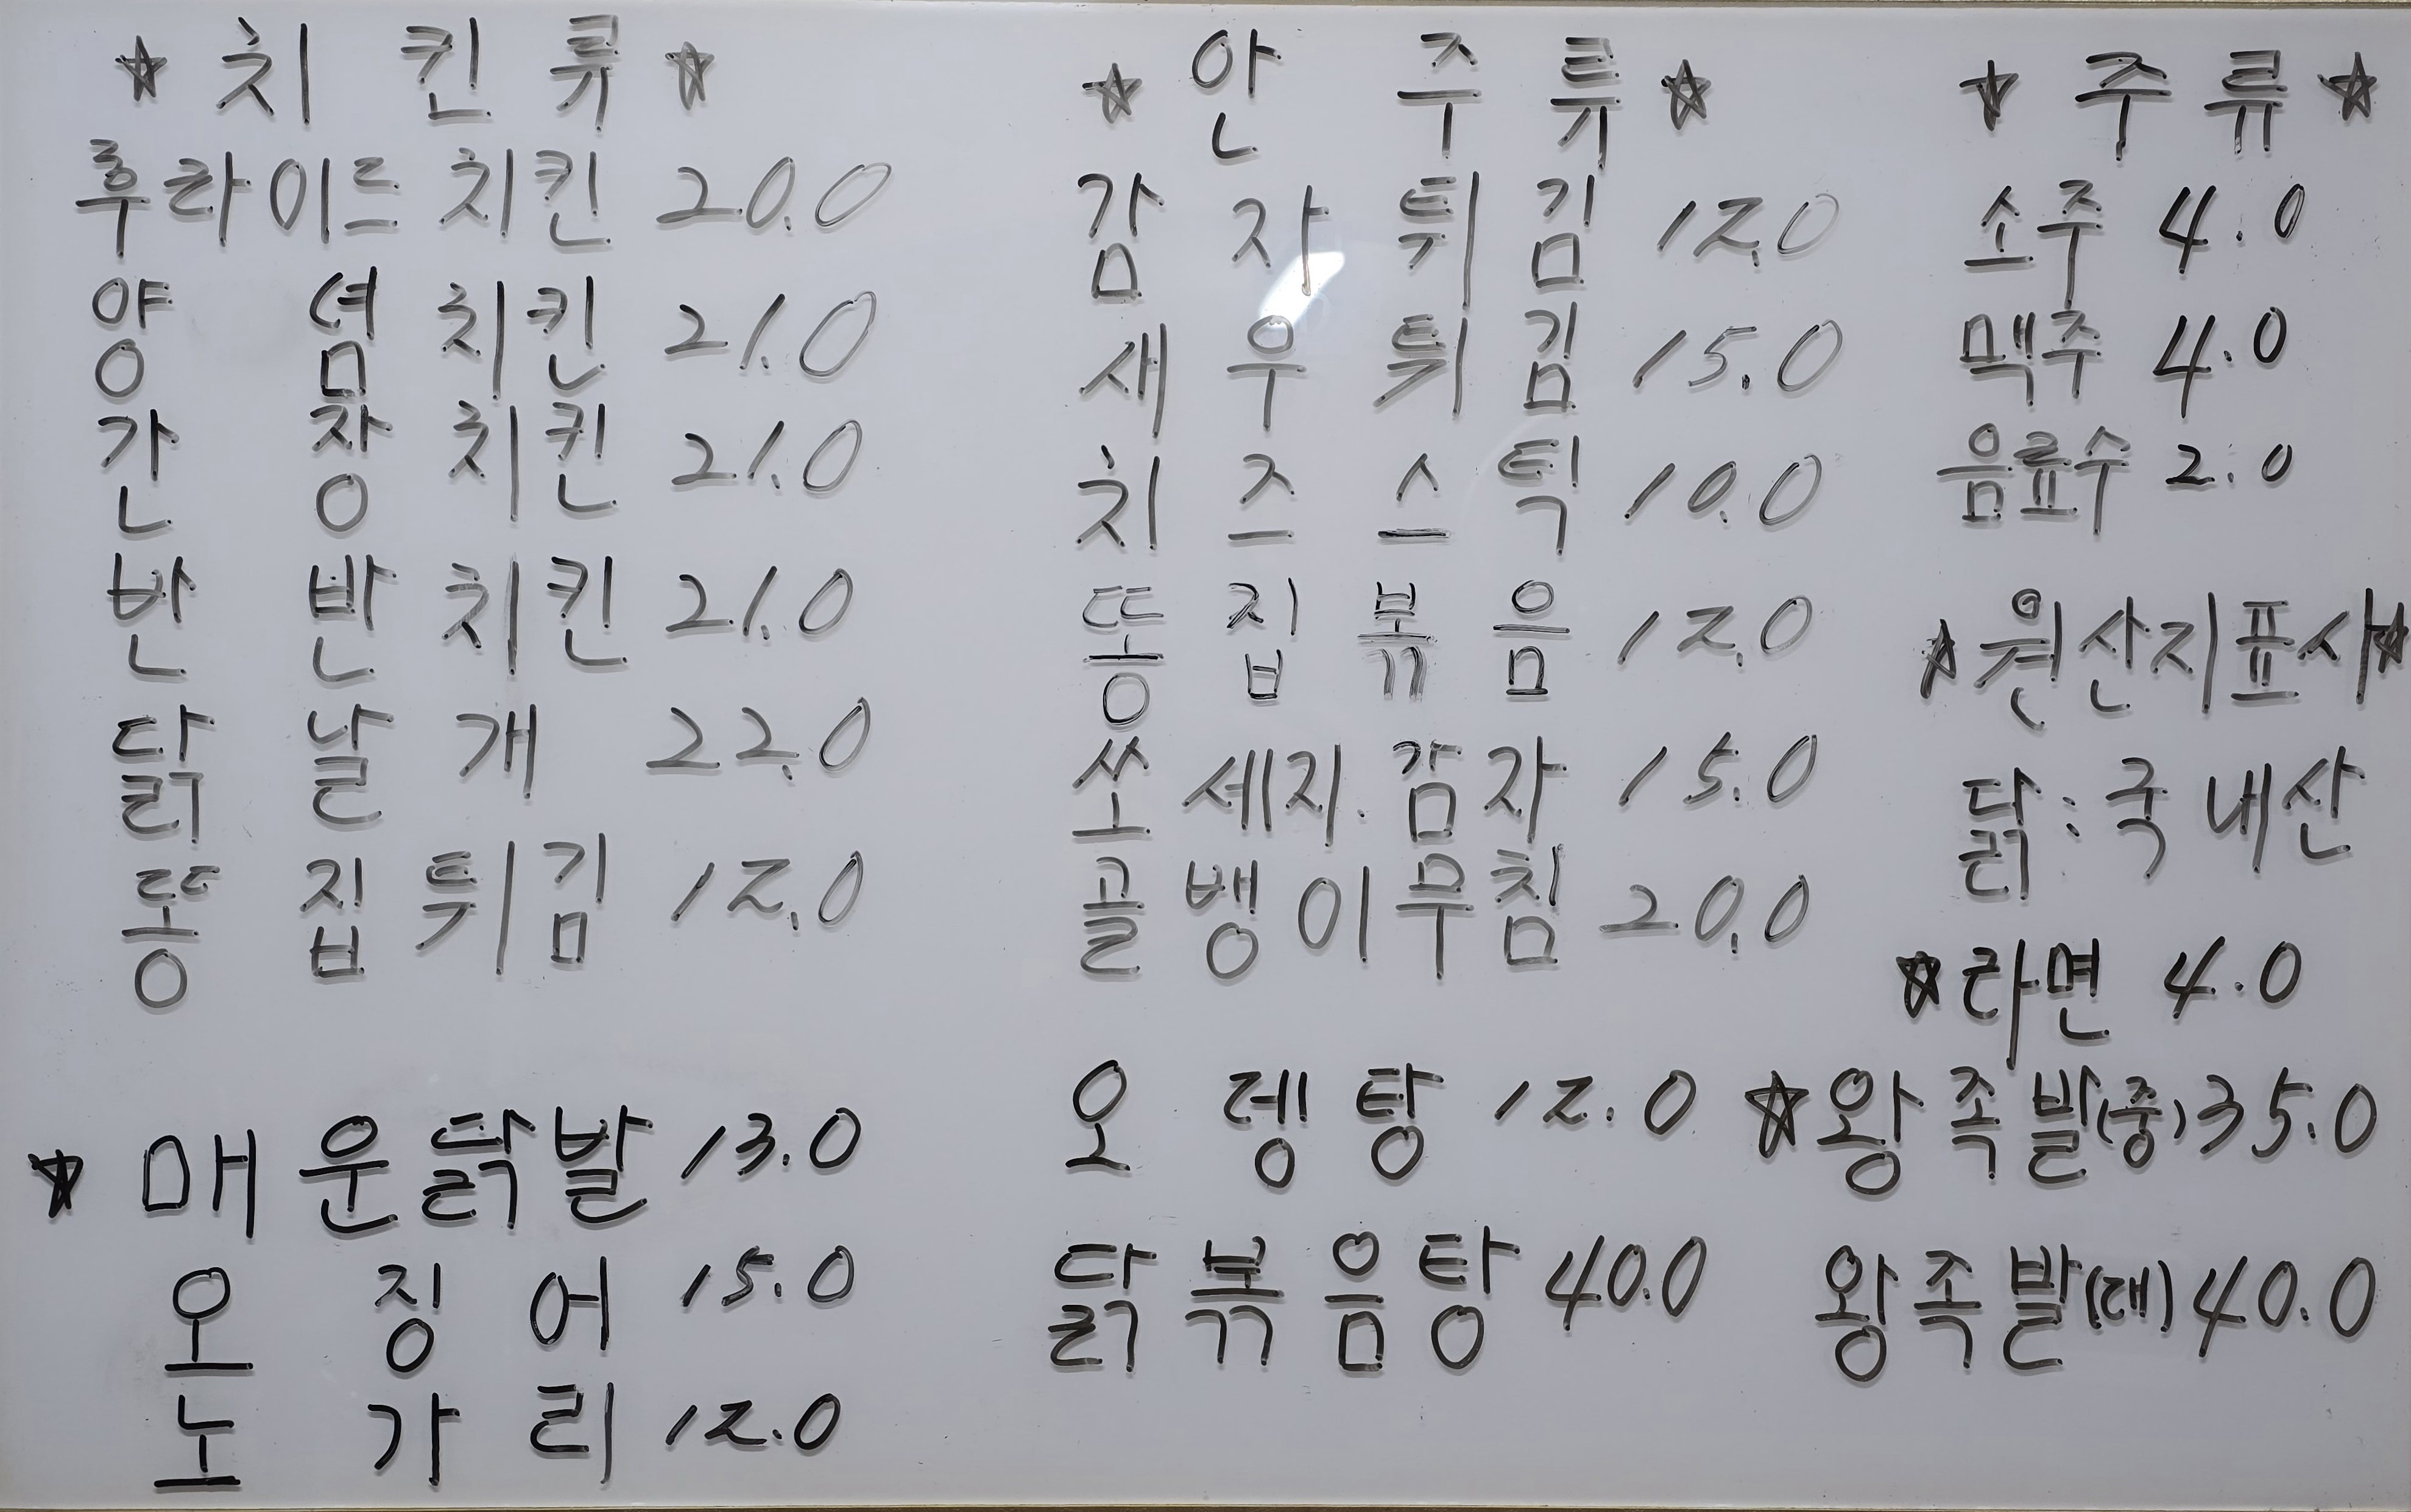 ☆ 치킨류 ☆
후라이드치킨 20.0
양념치킨 21.0
간장치킨 21.0
반반치킨 21.0
닭날개 22.0
똥집튀김 12.0
☆ 매운닭발 13.0
오징어 15.0
노가리 12.0
☆ 안주류 ☆
감자튀김 12.0
새우튀김 15.0
치즈스틱 10.0
똥집볶음 12.0
쏘세지.감자 15.0
골뱅이무침 20.0
오뎅탕 12.0
닭볶음탕 40.0
☆ 주류 ☆
소주 4.0
맥주 4.0
음료수 2.0
☆원산지표시☆
닭:국내산
☆라면 4.0
☆왕족발(중) 35.0
왕족발(대) 40.0